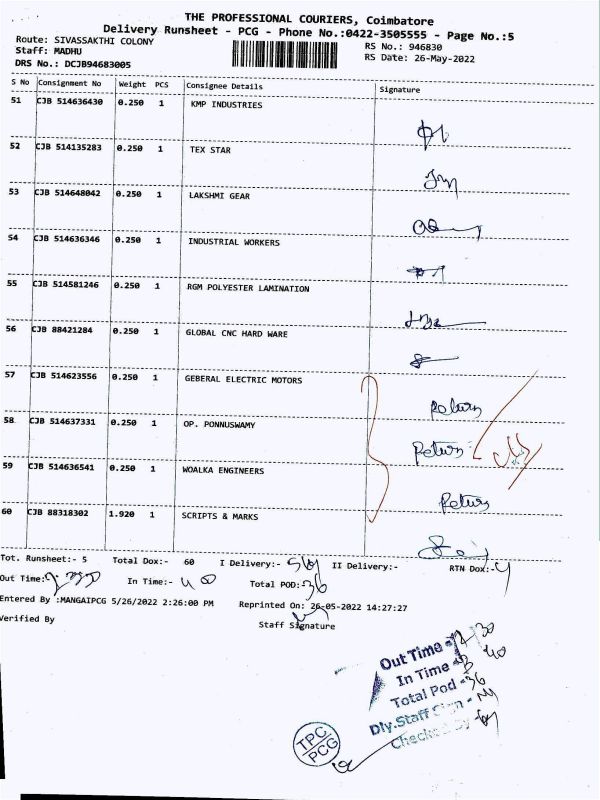 THE PROFESSIONAL COURIERS, Coimbatore
Delivery Runsheet - PCG - Phone No.:0422-3505555 - Page No.:5
Route: SIVASSAKTHI COLONY
RS No.: 946830
Staff: MADHU
RS Date: 26-May-2022
DRS No.: DCJB94683005
S No Consignment No Weight PCS Consignee Details Signature
51 CJB 514636430 0.250 1 KMP INDUSTRIES
52 CJB 514135283 0.250 1 TEX STAR
53 CJB 514648042 0.250 1 LAKSHMI GEAR
54 CJB 514636346 0.250 1 INDUSTRIAL WORKERS
55 CJB 514581246 0.250 1 RGM POLYESTER LAMINATION
56 CJB 88421284 0.250 1 GLOBAL CNC HARD WARE
57 CJB 514623556 0.250 1 GEBERAL ELECTRIC MOTORS
Return
58 CJB 514637331 0.250 1 OP. PONNUSWAMY
Return
59 CJB 514636541 0.250 1 WOALKA ENGINEERS
Return
60 CJB 88318302 1.920 1 SCRIPTS & MARKS
Tot. Runsheet:- 5 Total Dox:- 60 I Delivery:- II Delivery:- RTN Dox:-
Out Time: In Time:- Total POD:- 36
Entered By :MANGAIPCG 5/26/2022 2:26:00 PM Reprinted On: 26-05-2022 14:27:27
Verified By
Staff Signature
Out Time -
In Time - 40
Total Pod - 36
Dly.Staff Sign -
Checked By
TPC
PCG